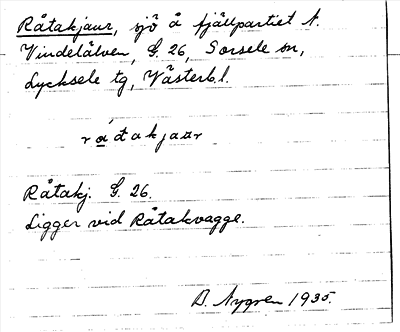 Råtakjaur, sjö å fjällpartiet N.
Vindelälven, G. 26, Sorsele sn,
Lycksele tg, Västerb. l.
ráđakjaur
Råtakj. G. 26.
Ligger vid Råtakvagge.
B. Nygren 1935.